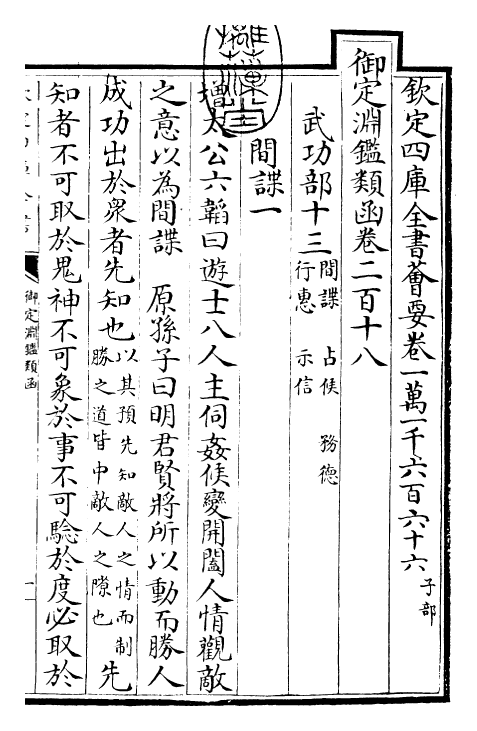 欽定四庫全書薈要卷一萬一千六百六十六子部
御定淵鑑類函卷二百十八
武功部十三間諜 占候 務德
行惠 示信
間諜一
增太公六韜曰遊士八人主伺姦候變開闔人情觀敵
之意以為間諜 原孫子曰明君賢將所以動而勝人
成功出於衆者先知也以其預先知敵人之情而制
勝之道皆中敵人之隙也先
知者不可取於鬼神不可象於事不可驗於度必取於
御定淵鑑類函
一